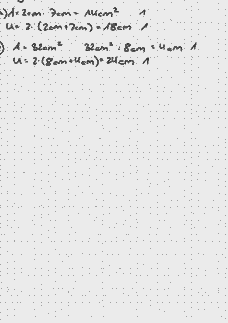 a) A = 2cm · 7cm = 14cm² 1
U = 2 · (2cm + 7cm) = 18cm 1
A = 32cm² 32cm² : 8cm = 4cm 1
U = 2 · (8cm + 4cm) = 24cm 1